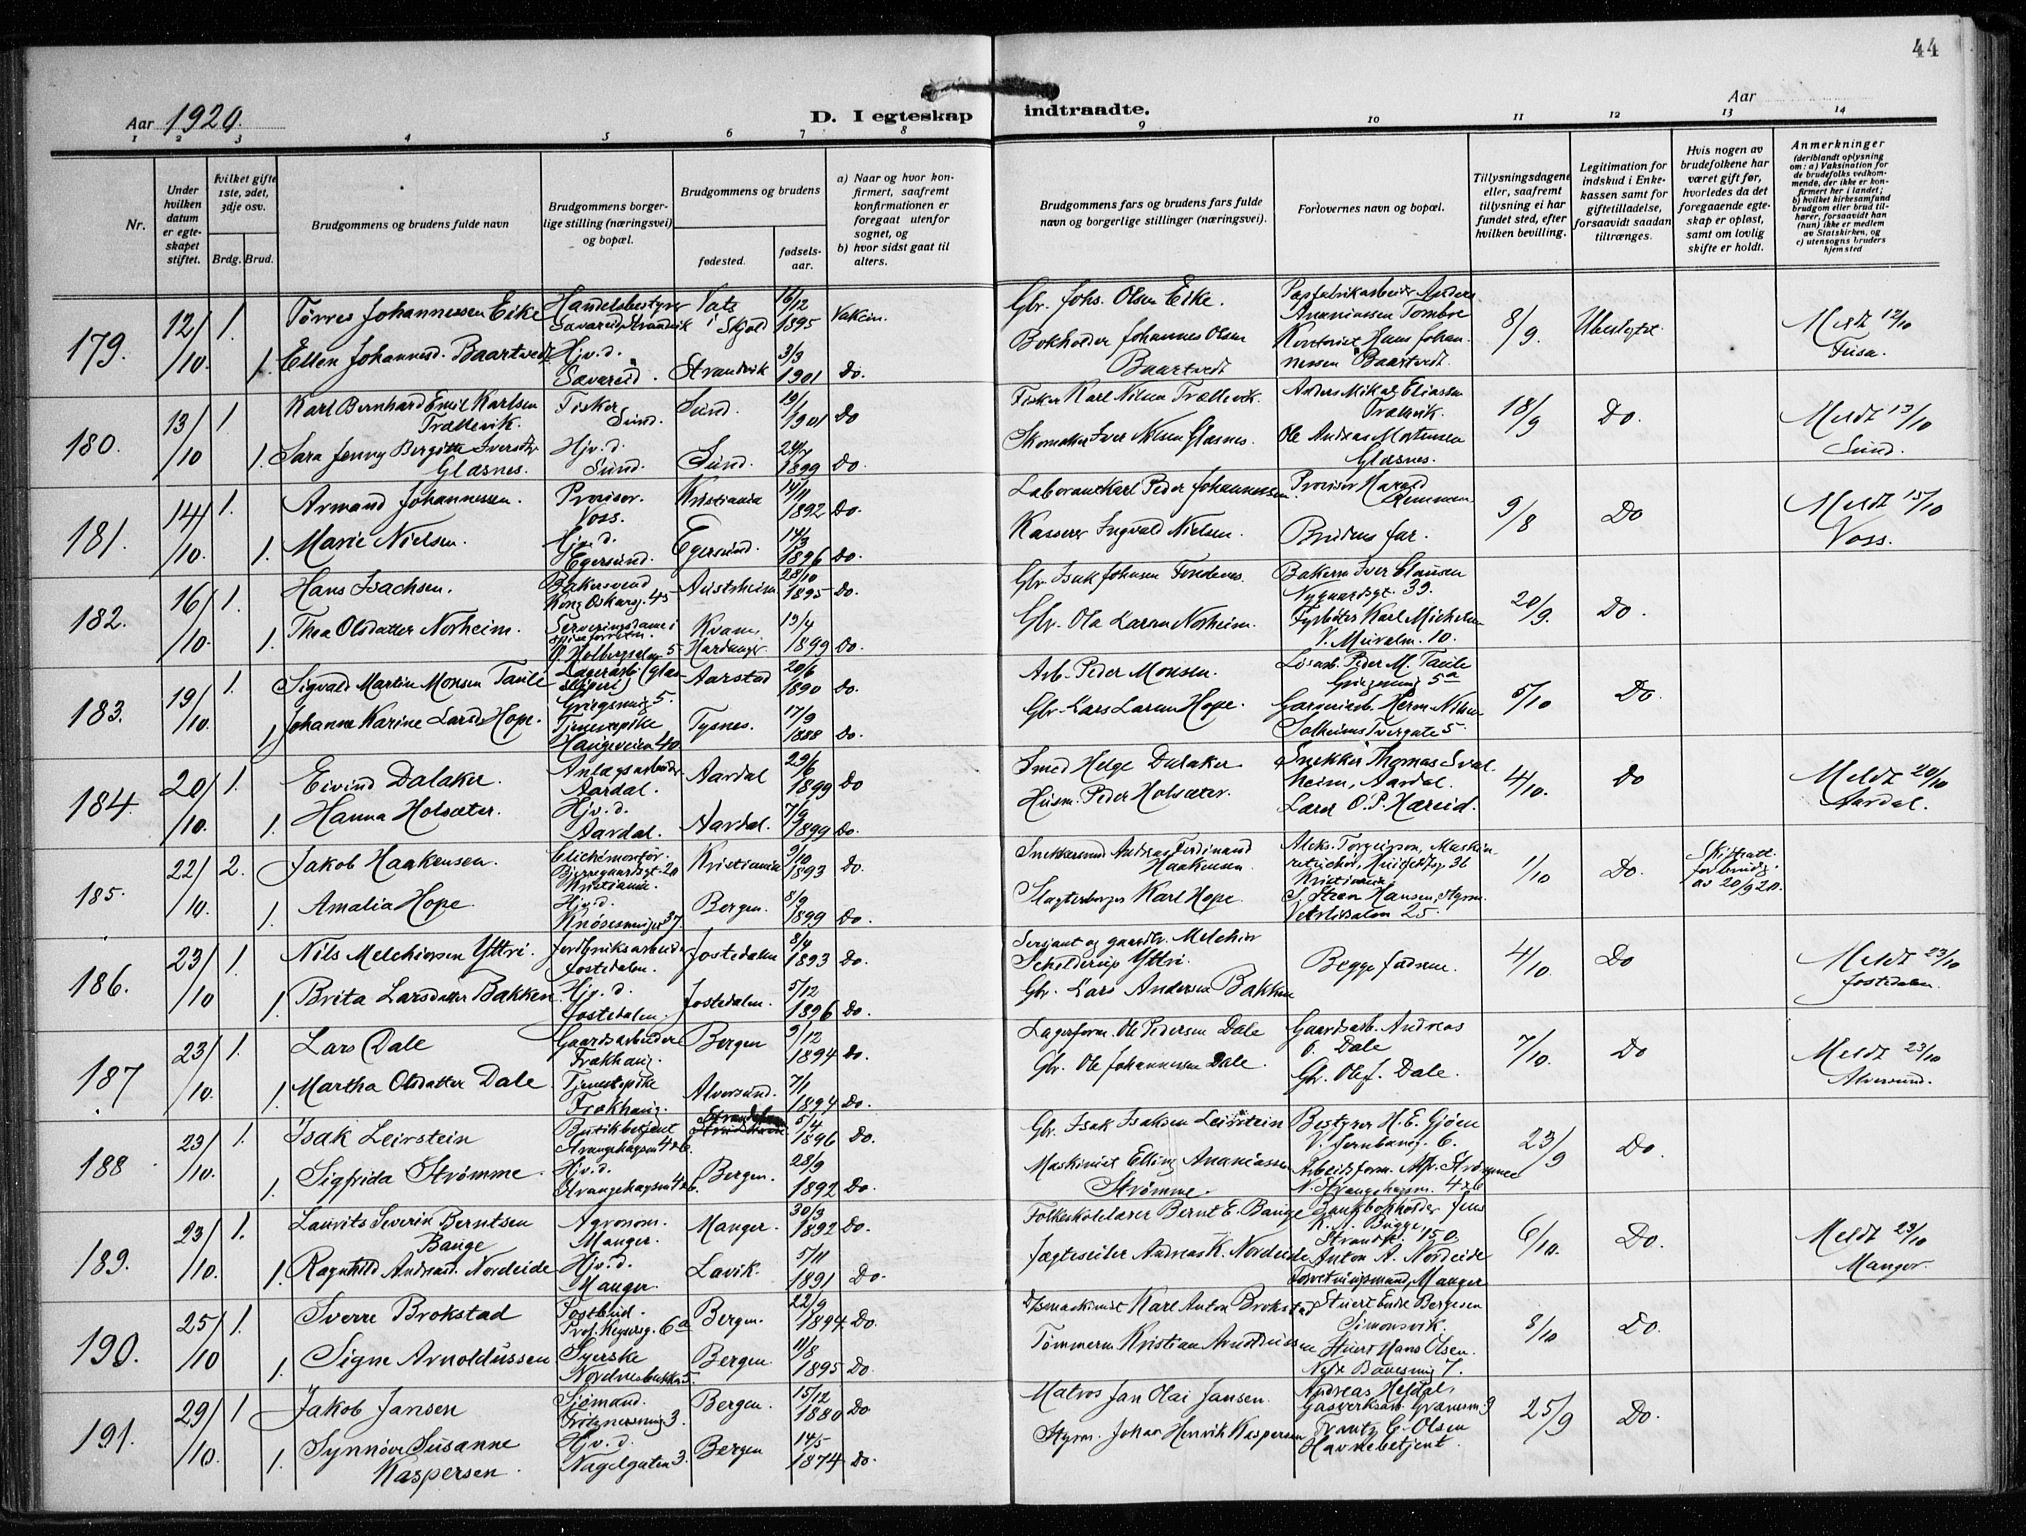 44
Aar 1920.
D. I egteskap indtraadte.
Aar
1 2 3 4 5 6 7 8 9 10 11 12 13 14
Nr.
Under hvilken datum er egteskapet stiftet.
hvilket gifte 1ste, 2det, 3dje osv.
Brdg. Brud.
Brudgommens og brudens fulde navn
Brudgommens borgerlige stilling (næringsvei) og bopæl.
Brudgommens og brudens
fødested.
fødselsaar.
a) Naar og hvor konfirmert, saafremt konfirmationen er foregaat utenfor sognet, og
b) hvor sidst gaat til alters.
Brudgommens fars og brudens fars fulde navn og borgerlige stillinger (næringsvei).
Forlovernes navn og bopæl.
Tillysningsdagene eller, saafremt tillysning ei har fundet sted, efter hvilken bevilling.
Legitimation for indskud i Enkekassen samt for giftetilladelse, forsaavidt saadan tiltrænges.
Hvis nogen av brudefolkene har været gift før, hvorledes da det foregaaende egteskap er opløst, samt om lovlig skifte er holdt.
Anmerkninger
(deriblandt oplysning om: a) Vaksination for de brudefolks vedkommende, der ikke er konfirmert her i landet; b) hvilket kirkesamfund brudgom eller brud tilhører, forsaavidt han (hun) ikke er medlem av Statskirken, og c) utensogns bruders hjemsted
179. 12/10. 1. Tørres Johannessen Eike Handelsbestyrer Savareid Strandvik Vats i Skjold 16/12 1895 Vakcin. Gbr. Johs. Olsen Eike. Ananiassen Tombre 8/9. Ubesligtet Meldt 12/10 Fusa.
1. Ellen Johannesd. Baartvedt Hjv. d. Savareid. Strandvik 3/3 1901 Do. Bokholder Johannes Olsen Baartvedt Kontorist Hans Johannessen Baartvedt.
180. 13/10 1 Karl Bernhard Emil Karlsen Trællevik. Fisker Sund. Sund. 19/1 1901 Do Fisker Karl Nilsen Trællevik. Anders Mikal Eliassen Trællevik. 18/9 Do. Meldt 13/10 Sund.
1. Sara Jenny Bergitta Iversdtr Glæsnes. Hjv. d. Sund. Sund. 24/7 1899 Do. Skomaker Iver Nilsen Glæsnes. Ole Andreas Mortensen Glæsnes.
181. 14/10. 1. Armand Johannessen. Provisor. Voss. Kristiania 14/11 1892 Do. Laborant Karl Peder Johannessen. Provisor Harald 9/8 Do Meldt 15/10 Voss.
1. Marie Nielsen. Hjv. d. Egersund. Egersund. 14/3 1896 Do. Kasserer Ingvald Nielsen. Brudens far.
182. 16/10. 1. Hans Isachsen. Bakersvend Kong Oskarsg. 45 Austrheim 28/10 1895 Do. Gbr. Isak Johnsen Bakerm Iver Clausen Nygaardsgt. 39. 20/9. Do.
1. Thea Olsdatter Norheim. Serveringsdame i Ø. Holbergsalm. 5 Kvam Hardanger 13/4 1899 Do. Gbr. Ola Larsen Norheim. Fyrbøter Karl Michelsen V. Muralm. 10.
183. 19/10. 1. Sigvald Martin Monsen Taule Griegsmug 5. Aarstad 20/6 1890 Do. Arb. Peder Monsen. Løsarb. Peder M. Taule 5a 5/10 Do.
1 Johanne Karine Larsd. Hope. Tjenestepike Haugeveien 40 Tysnes. 17/9 1888 Do. Gbr. Lars Larsen Hope. Herm. Nilsen Solheims Tvergate 5.
184. 20/10. 1. Eivind Dalaker Anlægsarbeider Aardal. Aardal 29/6 1899 Do Smed Helge Dalaker Snekker Thomas Svalheim, Aardal. 4/10. Do Meldt 20/10 Aardal.
1. Hanna Holsæter. Hjv. d. Aardal. Aardal. 7/9 1899 Do. Husm. Peder Holsæter. Lærer O. P. Hæreid.
185. 22/10. 2. Jakob Haakensen. Clichémontør. Bjerregaardsgt. 20 Kristiania. Kristiania 9/10 1893 Do. Snekkersvend Andreas Ferdinand Haakensen Aleks. Torgerson, Kristiania 1/10 Do. Skifteatt. for brudg. av 20/9 20.
1. Amalia Hope. Hjv. d. Knøsesmuget 37 Bergen. 8/9 1899 Do. Slagterborger Karl Hope. S. Steen Hansen, Styrm. Vetrlidsalm 25.
186. 23/10 1. Nils Melchiorsen Yttri. Jordbruksarbeider Jostedalen. Jostedalen 8/4 1893 Do. Sersjant og gaardbr. Melchior Schelderup Yttri. Begge fædrene. 4/10. Do Meldt 23/10 Jostedalen.
1. Brita Larsdatter Bakken. Hjv. d. Jostedalen. Jostedalen. 5/12 1896 Do. Gbr. Lars Andersen Bakken
187 23/10. 1. Lars Dale Gaardsarbeider Frækhaug. Bergen 9/12 1894 Do. Lagerform. Ole Pedersen Dale Gaardsarb. Andreas O. Dale 7/10. Do Meldt 23/10 Alversund.
1. Martha Olsdatter Dale Tjenestepike Frækhaug. Alversund. 7/1 1894 Do. Gbr. Ole Johannessen Dale. Gbr. Ole J. Dale.
188 23/10. 1. Isak Leirstein Butikbetjent Strangehagen 42b. 5/4 1896 Do. Gbr. Isak Isaksen Leirstein Bestyrer H. E. Gjøen V. Jernbaneg. 6. 23/9 Do.
1. Sigfrida Strømme. Hjv. d. Strangehagen 42b. Bergen. 28/9 1892 Do. Maskinist Elling Ananiassen Strømme. Arbeidsform. Alfr. Strømme N. Strangehagen. 42b
189. 23/10. 1. Laurits Severin Berntsen Bauge Agronom. Manger. Manger. 30/3 1892 Do. Folkeskolelærer Bernt E. Bauge Bankbokholder Jens K. A. Bugge, Strandgt. 150 6/10. Do. Meldt 23/10 Manger.
1. Ragnhild Andreasd. Nordeide Hjv. d. Manger. Lavik. 5/11 1891 Do. Jægteseiler Andreas K. Nordeide Anton A. Nordeide Forretningsmand, Manger
190. 25/10 1. Sverre Brokstad Postbud. Prof. Keysersg. 6a Bergen. 22/9 1894 Do. Karl Anton Brokstad Stuert Endre Bergesen Simonsvik. 8/10 Do.
1. Signe Arnoldussen Syerske Nordnesbakken 5. Bergen. 11/8 1895 Do. Tømmerm. Kristian Arnoldussen Hans Olsen. 7.
191. 29/10. 1 Jakob Jansen Sjømand. 3. Bergen. 15/12 1880 Do. Matros Jan Olai Jansen. Andreas Heldal, Gasverksarb. 25/9 Do.
1. Synnøve Susanne Kaspersen. Hjv. d. Nagelgaten 3. Bergen 14/5 1874 Do. Styrm. Johan Henrik Kaspersen Frantz C. Olsen Havnebetjent.